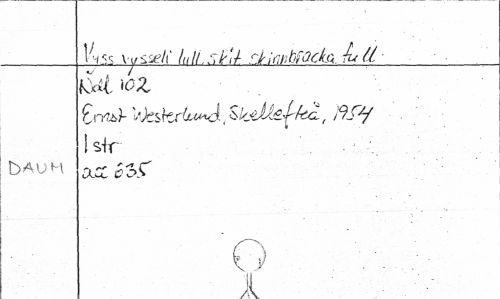 Vyss vysseli lull skit skinnbracka full.
Ndl 102
Ernst Westerlund, Skellefteå, 1954
1 str
DAUM acc 635